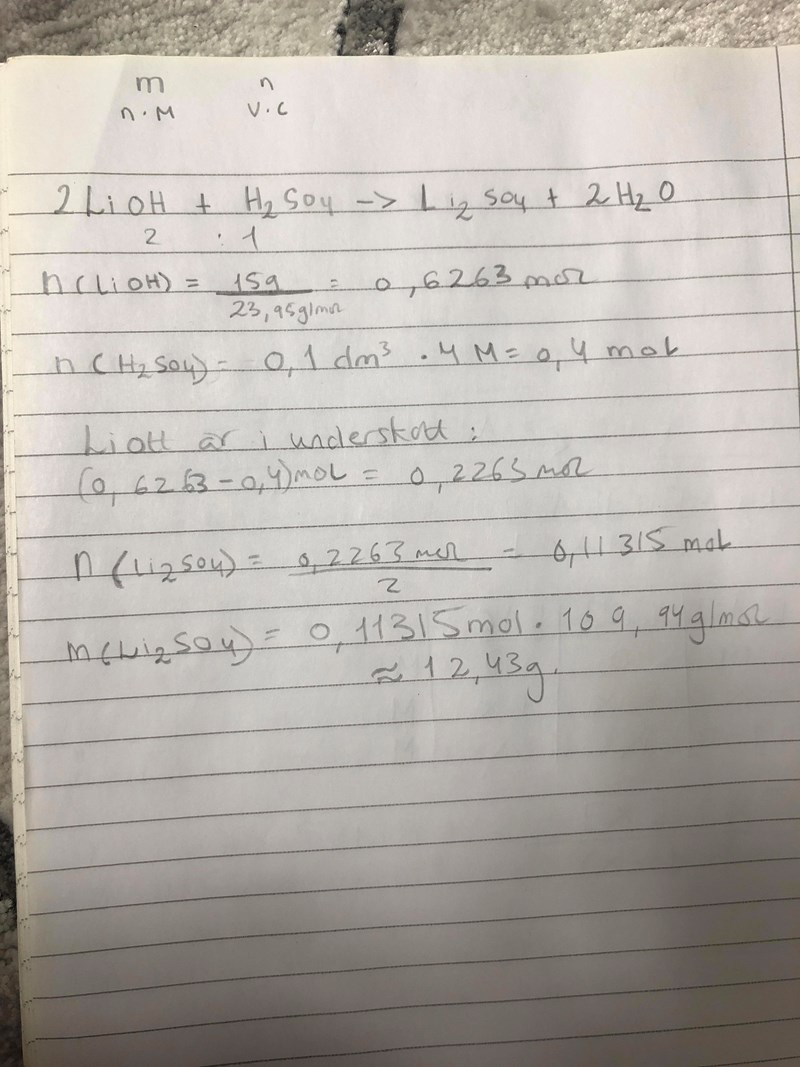 m n
n·M V·C
2LiOH + H2SO4 -> Li2SO4 + 2H2O
2 : 1
n(LiOH) = 15g / 23,95g/mol = 0,6263 mol
n(H2SO4) = 0,1 dm³ · 4 M = 0,4 mol
LiOH är i underskott :
(0,6263-0,4)mol = 0,2263 mol
n(Li2SO4) = 0,2263 mol / 2 = 0,11315 mol
m(Li2SO4) = 0,11315mol · 109,94g/mol
≈ 12,43g.